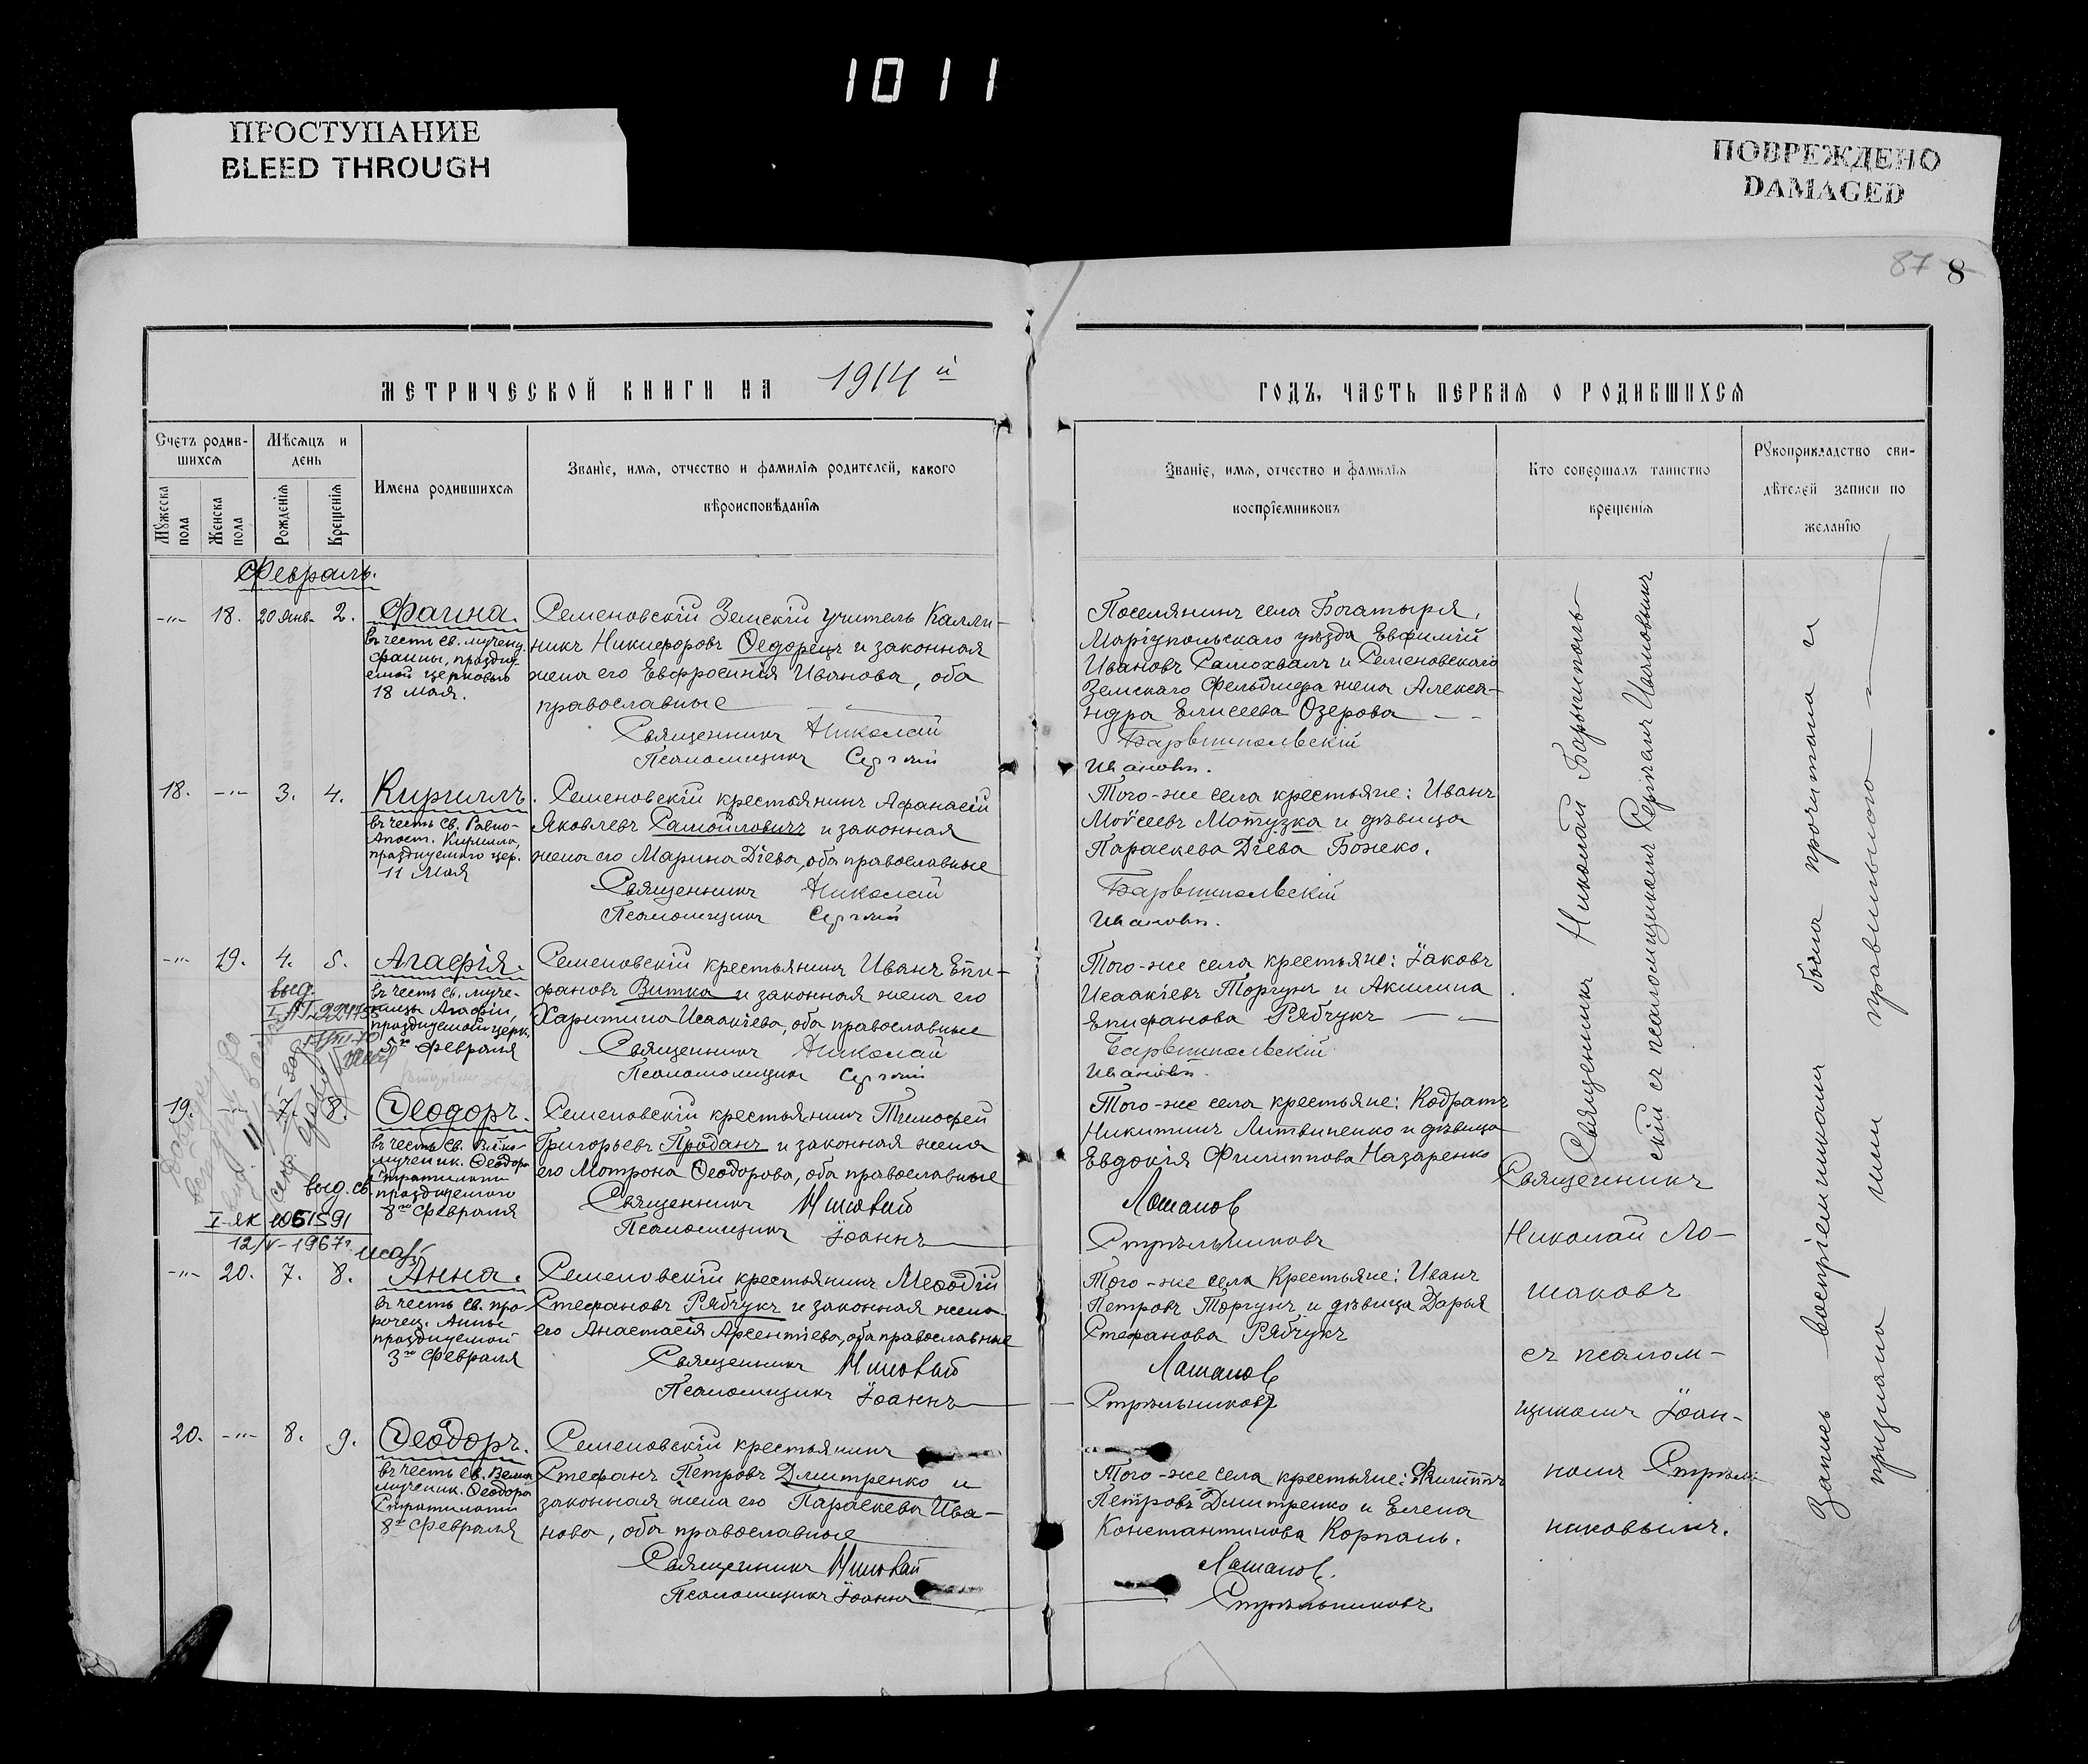 1011
ПРОСТУПАНИЕ
BLEED THROUGH
ПОВРЕЖДЕНО
DAMAGED
87 8
МЕТРИЧЕСКОЙ КНИГИ НА 1914 й
ГОДЪ, ЧАСТЬ ПЕРВАЯ О РОДИВШИХСЯ
Счетъ родив-
шихся
Мѣсяцъ и
день
Имена родившихся
Званіе, имя, отчество и фамилія родителей, какого
вѣроисповѣданія
Мужеска
пола
Женска
пола
Рожденія
Крещенія
Званіе, имя, отчество и фамилія
воспріемниковъ
Кто совершалъ таинство
крещенія
Рукоприкладство сви-
дѣтелей записи по
желанію
Февраль.
-"- 18. 20 Янв. 2. Фаина.
въ честь св. мучениц.
Фаины, праздну-
емой церковью
18 мая.
Семеновскій Земскій учитель Калли-
никъ Никифоровъ Ѳедорецъ и законная
жена его Евфросинія Иванова, оба
православные
Священникъ Николай
Псаломщикъ Сергій
Поселянинъ села Богатыря,
Маріупольскаго уѣзда Евфимій
Ивановъ Самохвалъ и Семеновскаго
Земскаго Фельдшера жена Алекса-
ндра Елисеева Озерова
Барвинпольскій
Ивановъ.
18. -"- 3. 4. Кириллъ.
въ честь Св. Равно-
Апост. Кирилла,
празднуемаго цер.
11 Мая
Семеновскій крестьянинъ Афанасій
Яковлевъ Самойловичъ и законная
жена его Марина Діева, оба православные
Священникъ Николай
Псаломщикъ Сергій
Того-же села крестьяне: Иванъ
Мойсеевъ Мотузка и дѣвица
Параскева Діева Божеко.
Барвинпольскій
Ивановъ.
-"- 19. 4. 5. Агафія.
въ честь св. муче-
ницы Агафіи,
празднуемой церк.
5го Февраля
выд.
Семеновскій крестьянинъ Иванъ Епи-
фановъ Витка и законная жена его
Харитина Исаакіева, оба православные
Священникъ Николай
Псаломщикъ Сергій
Того-же села крестьяне: Іаковъ
Исаакіевъ Торгунъ и Акилина
Епифанова Рябчукъ
Барвинпольскій
Ивановъ.
19. -"- 7. 8. Ѳеодоръ.
въ честь Св. Велико-
мученик. Ѳеодора
Стратилата
празднуемаго
8го Февраля
выд. св.
I-ЯК 1051591
12/V-1967г.
Семеновскій крестьянинъ Тимофей
Григорьевъ Проданъ и законная жена
его Мотрона Ѳеодорова, оба православные
Священникъ Николай
Псаломщикъ Іоаннъ
Того-же села крестьяне: Кодратъ
Никитинъ Литвиненко и дѣвица
Евдокія Филиппова Назаренко
Лошаковъ
Стрѣльниковъ
-"- 20. 7. 8. Анна.
въ честь Св. про-
рочиц. Анны
празднуемой
3го Февраля
Семеновскій крестьянинъ Меѳодій
Стефановъ Рябчукъ и законная жена
его Анастасія Арсентіева, оба православные
Священникъ Николай
Псаломщикъ Іоаннъ
Того-же села Крестьяне: Иванъ
Петровъ Торгунъ и дѣвица Дарья
Стефанова Рябчукъ
Лошаковъ
Стрѣльниковъ
20. -"- 8. 9. Ѳеодоръ.
въ честь Св. Велик.
мученик. Ѳеодора
Стратилата
8го Февраля
Семеновскій крестьянинъ
Стефанъ Петровъ Дмитренко и
законная жена его Параскева Ива-
нова, оба православные
Священникъ Николай
Псаломщикъ Іоаннъ
Того-же села крестьяне: Филиппъ
Петровъ Дмитренко и Елена
Константинова Корпань.
Лошаковъ.
Стрѣльниковъ
Священникъ Николай
скій съ псаломщикомъ Сергіемъ Ивановымъ
Священникъ
Николай Ло-
шаковъ
съ псалом-
щикомъ Іоан-
номъ Стрѣль-
никовымъ.
Запись воспріемниками была прочитана и
признана ими правильною